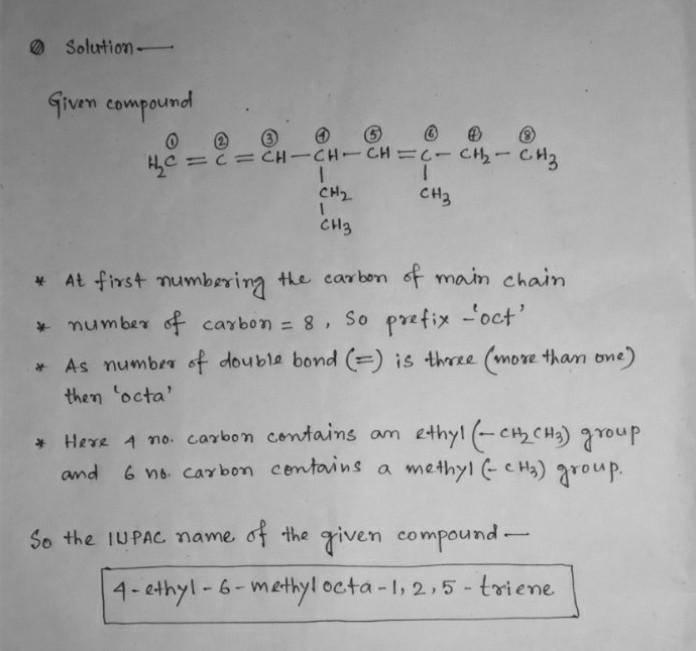 Solution —
Given compound
① ② ③ ④ ⑤ ⑥ ⑦ ⑧
H₂C = C = CH — CH — CH = C — CH₂ — CH₃
CH₂ CH₃
CH₃
* At first numbering the carbon of main chain
* number of carbon = 8, So prefix - 'oct'
* As number of double bond (=) is three (more than one)
then 'octa'
* Here 4 no. carbon contains an ethyl (-CH₂CH₃) group
and 6 no. carbon contains a methyl (-CH₃) group.
So the IUPAC name of the given compound —
4-ethyl-6-methylocta-1,2,5-triene